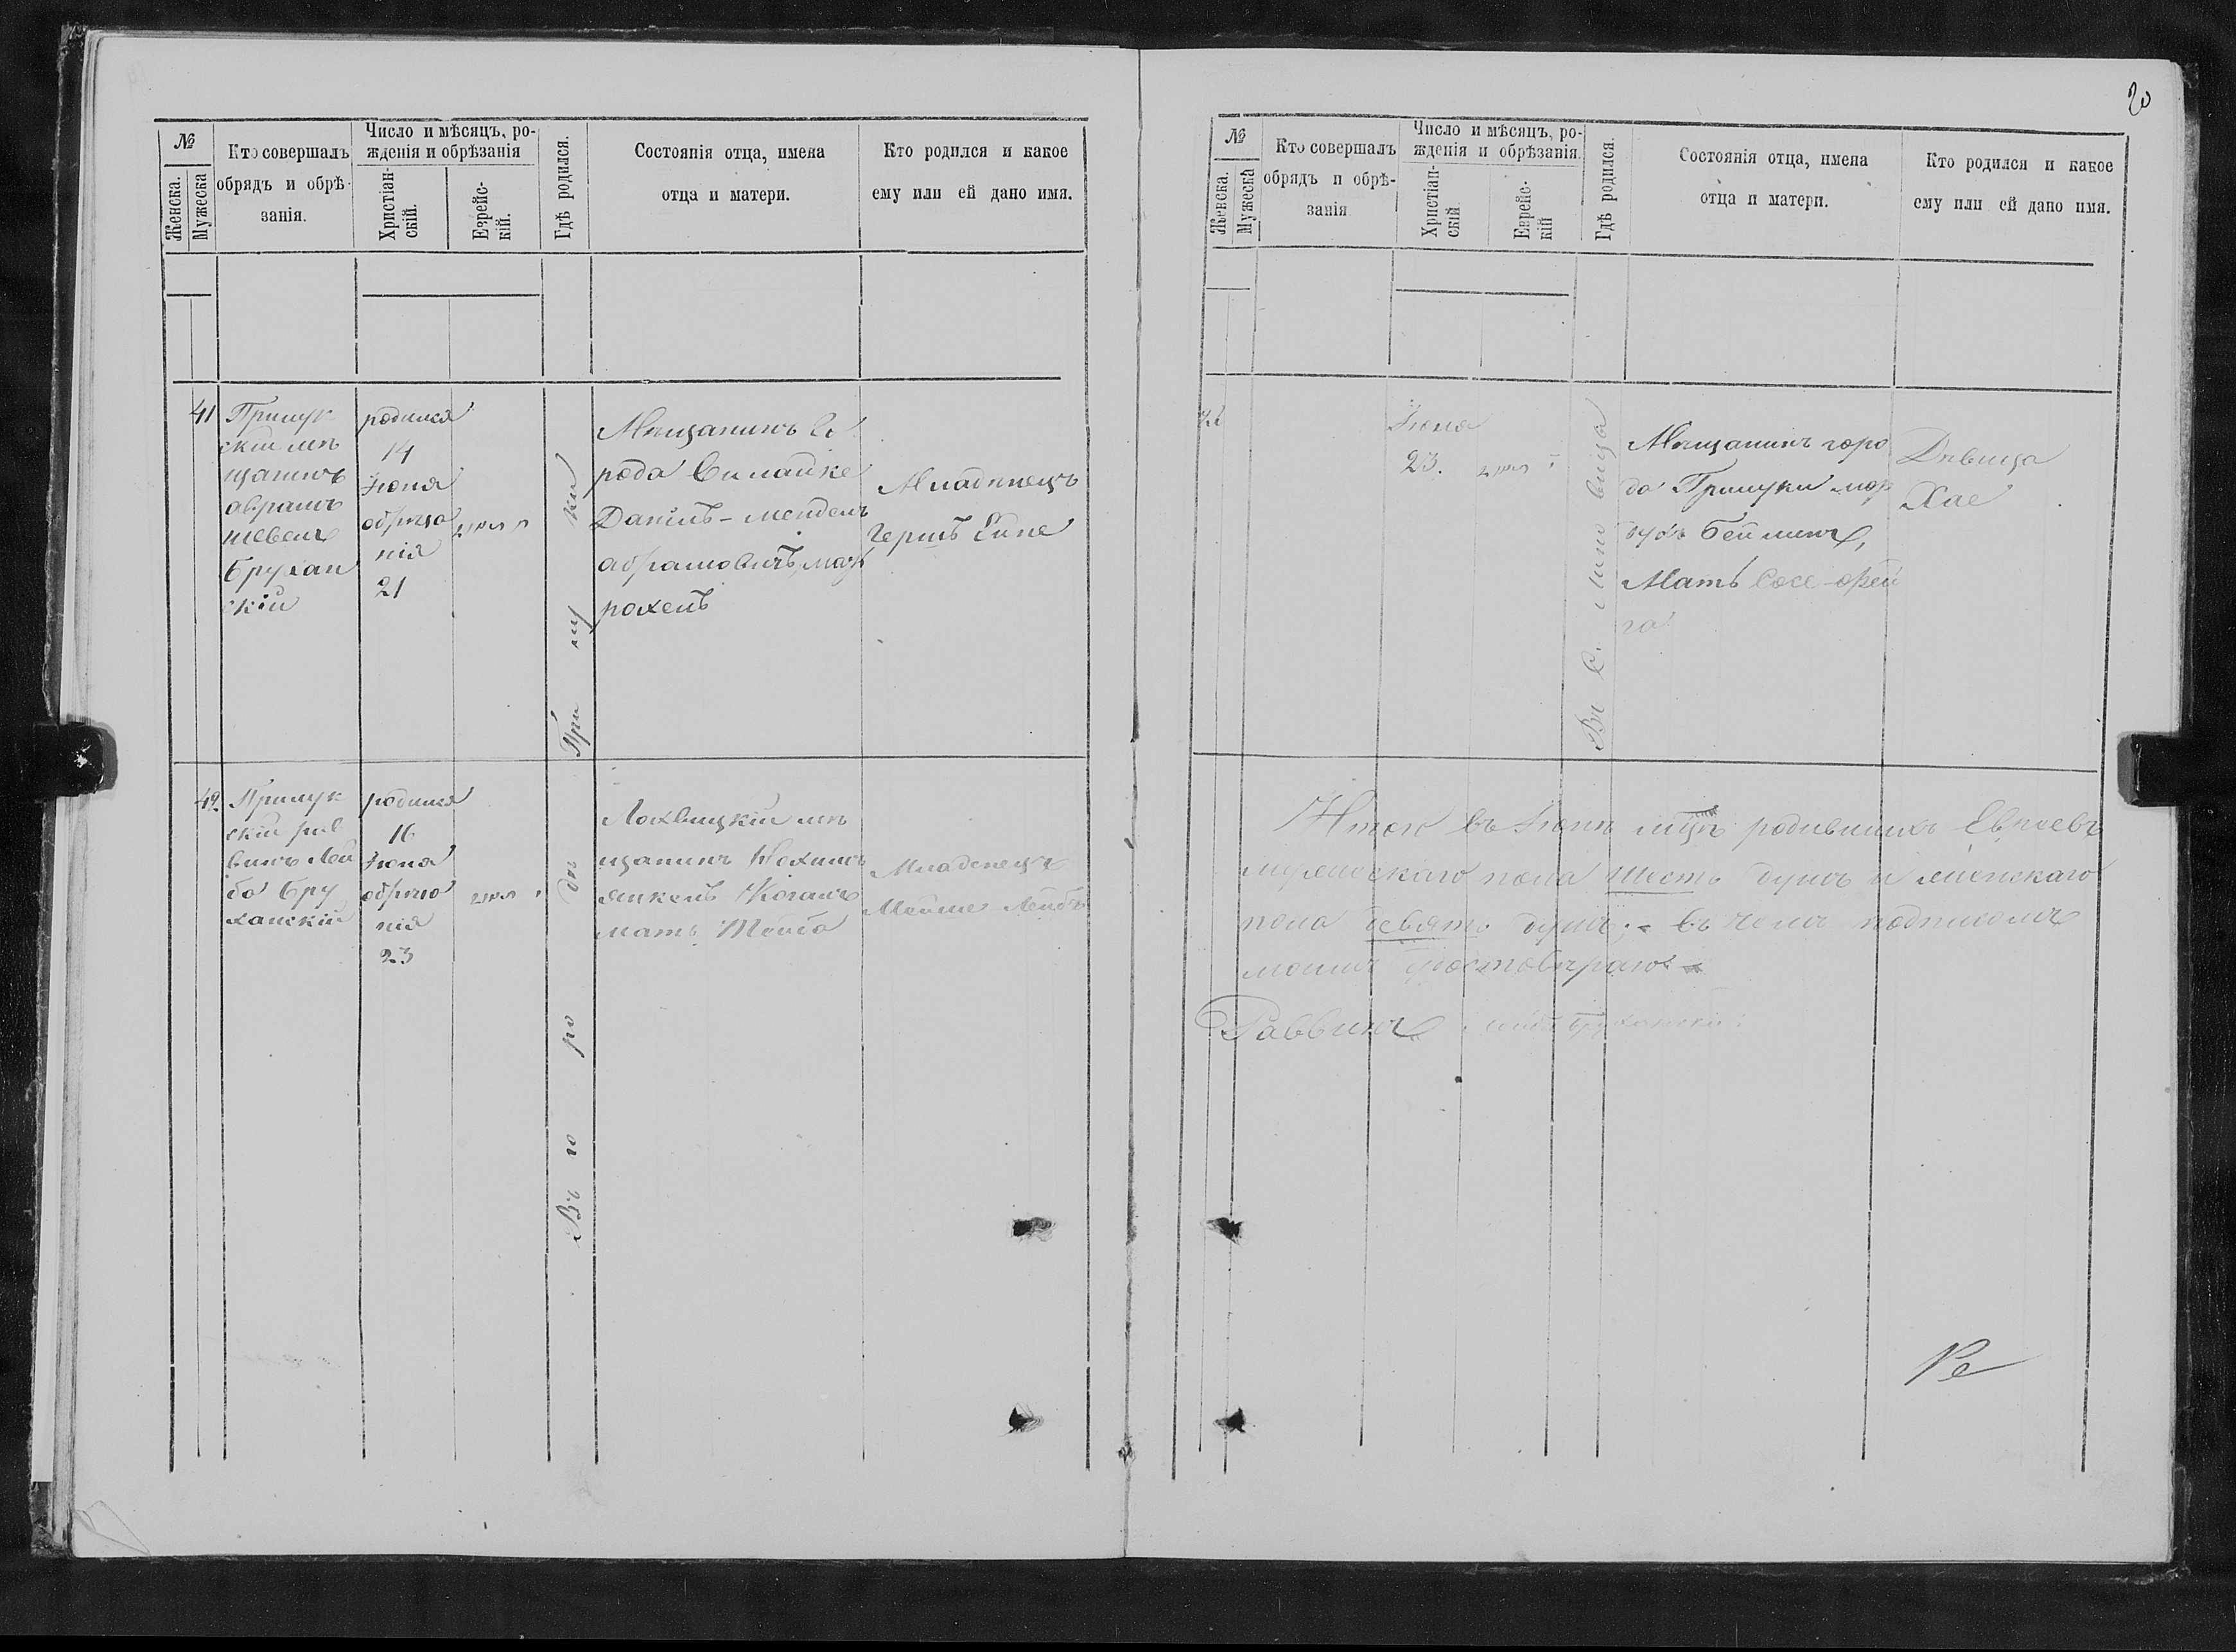 20
№
Женска.
Мужеска
Кто совершалъ
обрядъ и обрѣ-
занія.
Число и мѣсяцъ, ро-
жденія и обрѣзанія
Христіан-
скій.
Еврейс-
кій.
Гдѣ родился.
Состоянія отца, имена
отца и матери.
Кто родился и какое
ему или ей дано имя.
41
Прилук
скій мѣ
щанинъ
Абрамъ
Брухан
скій
родился
14
Іюня
обрѣза
нія
21
Въ го ро дѣ При лу ки
Мѣщанинъ го
рода
Данилъ-Мендель
Абрамовичъ, мат
Рохель
Младенецъ
Гершъ
42
Прилук
скій рав
винъ Лей
ба Бру
ханскій
родился
16
Іюня
обрѣза
нія
23
Лохвицкій мѣ
щанинъ Нохимъ
Янкель Коганъ
мать Тойба
Младенецъ
Мойше Лейбъ
№
Женска.
Мужеска
Кто совершалъ
обрядъ и обрѣ-
занія
Число и мѣсяцъ, ро-
жденія и обрѣзанія.
Христіан-
скій
Еврейс-
кій
Гдѣ родился.
Состоянія отца, имена
отца и матери.
Кто родился и какое
ему или ей дано имя.
Іюня
23.
Въ с.
Мѣщанинъ горо
да Прилуки Мор
духъ Бейлинъ,
Мать Сосе-Фей
га
Дѣвица
Хае
Итого въ Іюнѣ мцѣ родившихъ Евреевъ
мужескаго пола шесть душъ и женскаго
пола девять душъ; - въ чемъ подписомъ
моимъ удостовѣраю
Раввинъ Лейба Бруханскій